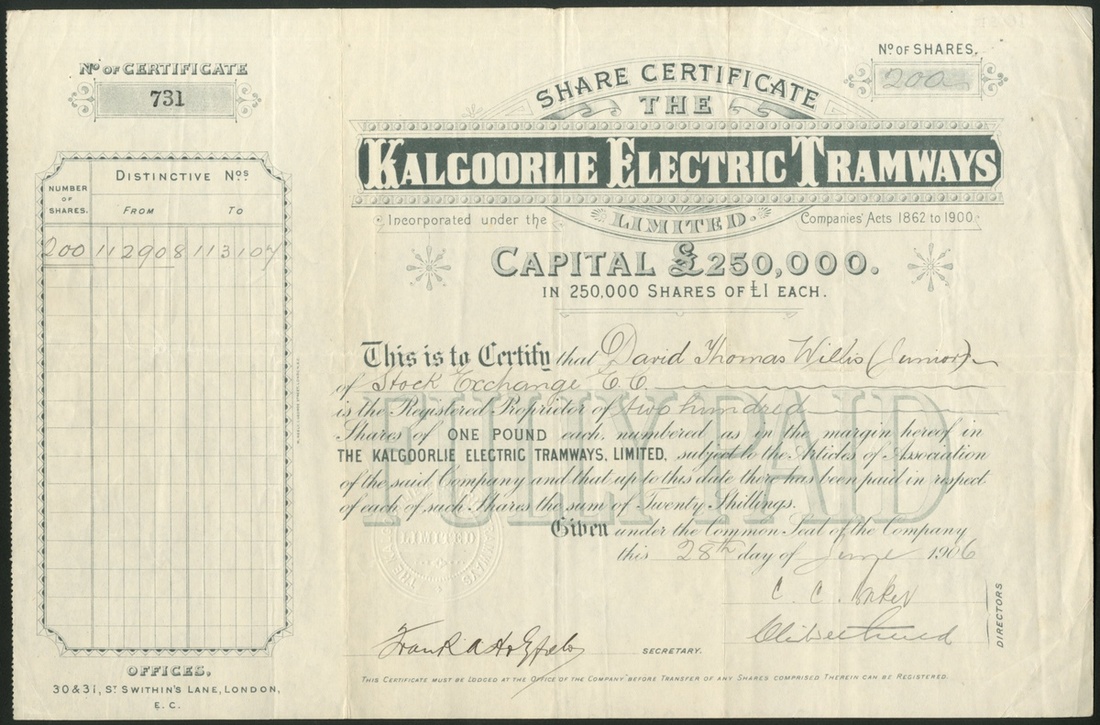 Nº OF CERTIFICATE
731
Nº OF SHARES.
200
SHARE CERTIFICATE
THE
KALGOORLIE ELECTRIC TRAMWAYS
LIMITED.
Incorporated under the Companies' Acts 1862 to 1900.
CAPITAL £250,000.
IN 250,000 SHARES OF £1 EACH.
NUMBER OF SHARES.
DISTINCTIVE Nºs
FROM TO
200 112908 113107
This is to Certify that David Thomas Willis (Junior)
of Stock Exchange E.C.
is the Registered Proprietor of two hundred
Shares of ONE POUND each, numbered as in the margin hereof in
THE KALGOORLIE ELECTRIC TRAMWAYS, LIMITED, subject to the Articles of Association
of the said Company and that up to this date there has been paid in respect
of each of such Shares the sum of Twenty Shillings.
FULLY PAID
Given under the Common Seal of the Company
this 28th day of June 1906
LIMITED
C. C.
DIRECTORS
Frank A
SECRETARY.
THIS CERTIFICATE MUST BE LODGED AT THE OFFICE OF THE COMPANY BEFORE TRANSFER OF ANY SHARES COMPRISED THEREIN CAN BE REGISTERED.
OFFICES,
30 & 31, ST SWITHIN'S LANE, LONDON,
E. C.